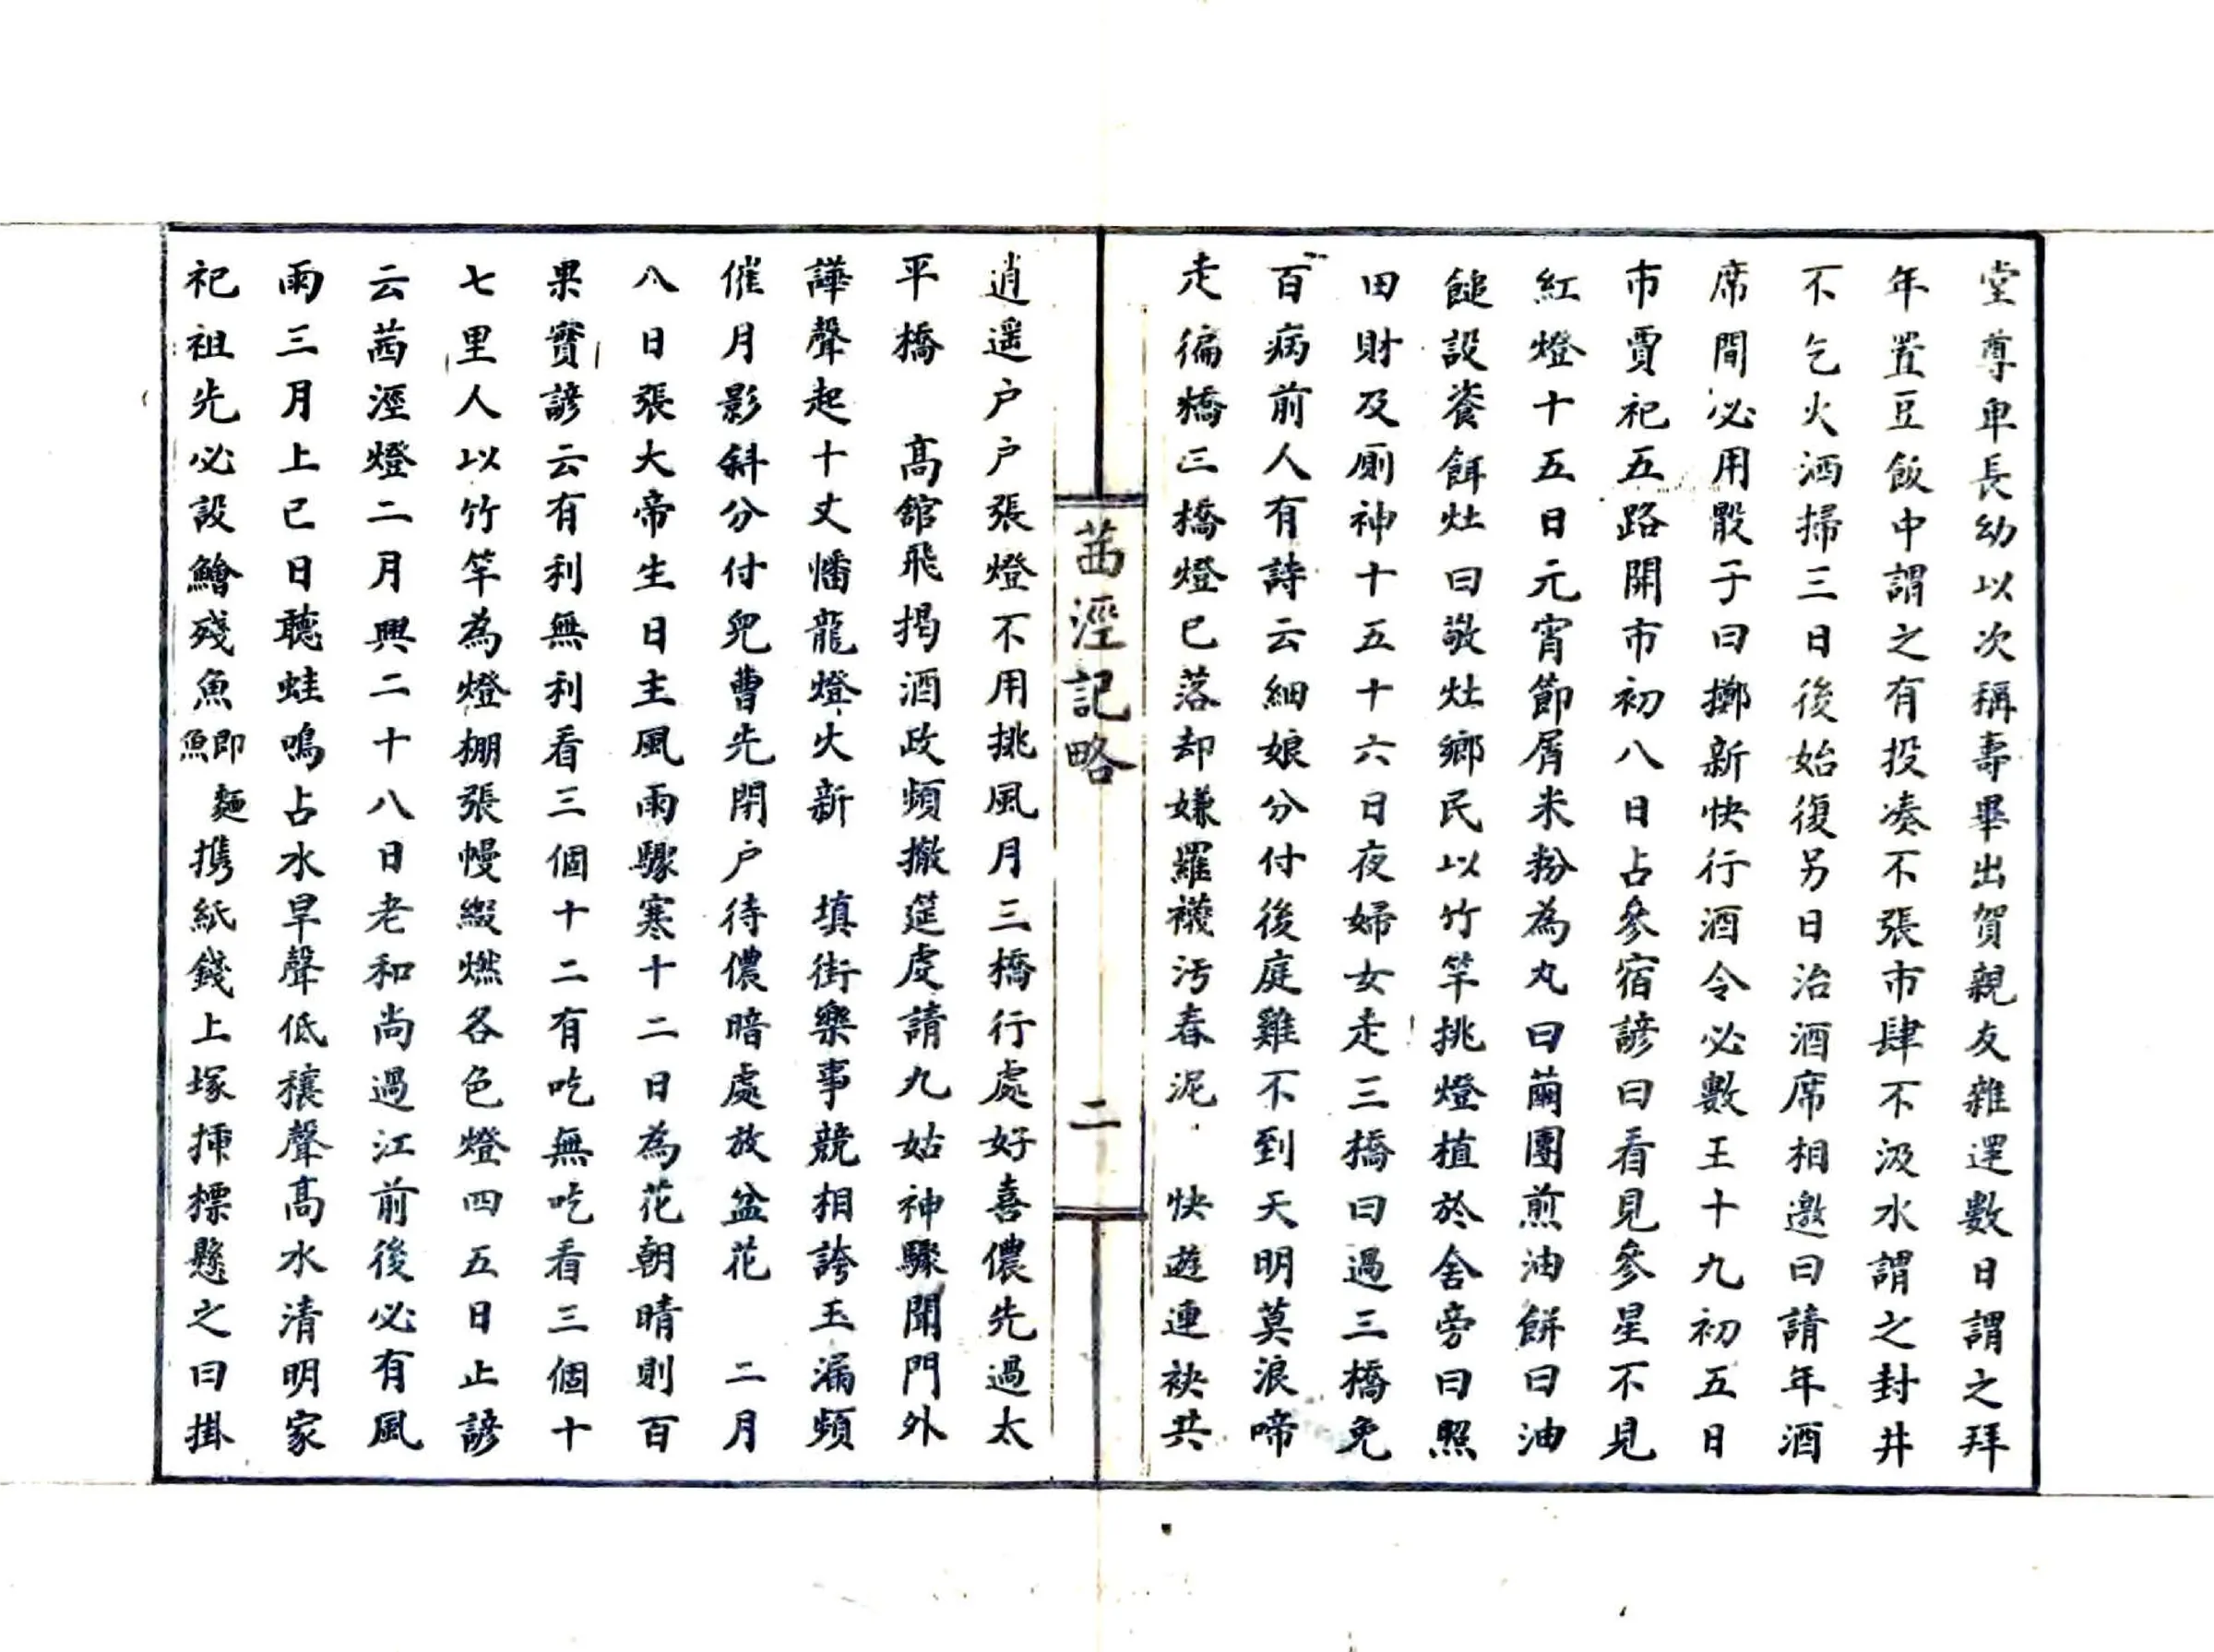 堂尊卑長幼以次稱壽畢出賀親友雜遝數日謂之拜
年置豆飯中謂之有投凑不張市肆不汲水謂之封井
不乞火酒掃三日後始復另日治酒席相邀曰請年酒
席間必用骰子曰擲新快行酒令必數王十九初五日
市賈祀五路開市初八日占參宿諺曰看見參星不見
紅燈十五日元宵節屑米粉為丸曰繭團煎油餅曰油
䭔設餈餌灶曰敬灶鄉民以竹竿挑燈植於舍旁曰照
田財及厠神十五十六日夜婦女走三橋曰過三橋免
百病前人有詩云細娘分付後庭雞不到天明莫浪啼
走徧橋三橋燈已落却嫌羅襪汚春泥　快遊連袂共
茜涇記略
二
逍遥户户張燈不用挑風月三橋行處好喜儂先過太
平橋　高舘飛揭酒政頻撤筵虔請九姑神驟聞門外
譁聲起十丈幡龍燈火新　填街樂事競相誇玉漏頻
催月影斜分付兒曹先閉户待儂暗處放盆花　二月
八日張大帝生日主風雨驟寒十二日為花朝晴則百
果實諺云有利無利看三個十二有吃無吃看三個十
七里人以竹竿為燈棚張幔綴燃各色燈四五日止諺
云茜涇燈二月興二十八日老和尚過江前後必有風
雨三月上巳日聽蛙鳴占水旱聲低穰聲高水清明家
祀祖先必設鱠殘魚即麵魚携紙錢上塚挿標懸之曰掛